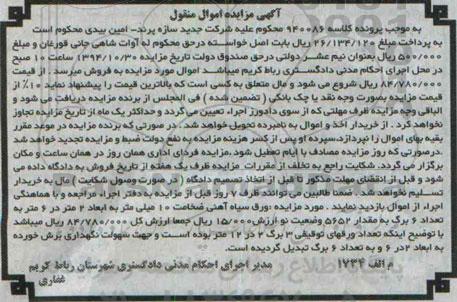 آگهی مزایده اموال منقول
به موجب پرونده کلاسه ۹۴۰۰۸۶ محکوم علیه شرکت جدید سازه پرند- امین بیدی محکوم است
به پرداخت مبلغ ۲۶/۱۳۴/۱۲۰ ریال بابت اصل خواسته درحق محکوم له آوات شاهی جانی قورغان و مبلغ
۵۰۰/۰۰۰ ریال بعنوان نیم عشر دولتی درحق صندوق دولت تاریخ مزایده ۱۳۹۴/۱۰/۳۰ ساعت ۱۰ صبح
در محل اجرای احکام مدنی دادگستری رباط کریم میباشد اموال مورد مزایده به فروش میرسد. از قیمت
۸۴/۷۸۰/۰۰۰ ریال شروع می شود و مال متعلق به کسی است که بالاترین قیمت را پیشنهاد نماید ۱۰٪ از
قیمت مزایده بصورت وجه نقد یا چک بانکی (تضمین شده) فی المجلس از برنده مزایده دریافت می شود و
الباقی وجه مزایده ظرف مهلتی که از سوی دادورز اجراء تعیین می گردد و حداکثر یک ماه از تاریخ مزایده تجاوز
نخواهد کرد. از خریدار اخذ و اموال به نامبرده تحویل خواهد شد. در صورتی که برنده مزایده در موعد مقرر
بقیه بهای اموال را نپردازد، سپرده او پس از کسر هزینه مزایده به نفع دولت ضبط و مزایده تجدید خواهد شد
.درصورتی که روز مزایده مصادف با ایام تعطیل شود، مزایده فردای اداری همان روز در همان ساعت و مکان
برگزار می گردد. شکایت راجع به تخلف از مقررات مزایده ظرف یک هفته از تاریخ فروش به دادگاه داده می
شود و قبل از انقضای مهلت مذکور تا قبل از اتخاذ تصمیم دادگاه (در صورت وصول شکایت) مال به خریدار
تسلیم نخواهد شد. ضمنا طالبین می توانند ظرف ۵ روز قبل از مزایده به دفتر اجراء مراجعه و با هماهنگی
اجراء از اموال بازدید نمایند. مورد مزایده :ورق سیاه آهنی ضخامت ۱۰ میلی متر به ابعاد ۲ متر در ۶ متر به
تعداد ۶ برگ به مقدار ۵۶۵۲ وضعیت نو ارزش ۱۵/۰۰۰ ریال جمعا ارزش کل ۸۴/۷۸۰/۰۰۰ ریال میباشد
با توضیح اینکه تعداد ورقهای توقیفی ۳ برگ ۲ در ۱۲ متر بوده است و جهت سهولت نگهداری برش خورده
به ابعاد ۲در ۶ و به تعداد ۶ برگ تبدیل گردیده است.
م الف ۱۷۳۴ مدیر اجرای احکام مدنی دادگستری شهرستان رباط کریم
غفاری